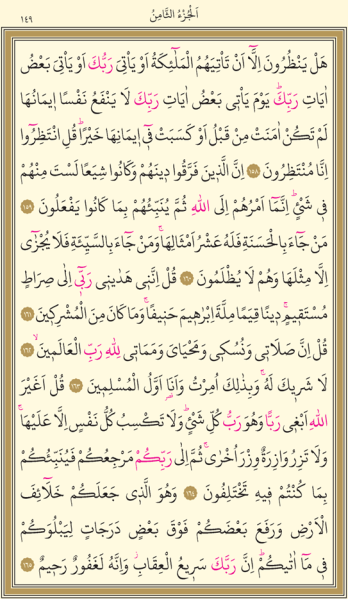 اَلْجُزْءُ الثَّامِنُ
١٤٩
هَلْ يَنْظُرُونَ اِلَّٓا اَنْ تَاْتِيَهُمُ الْمَلٰٓئِكَةُ اَوْ يَاْتِيَ رَبُّكَ اَوْ يَاْتِيَ بَعْضُ
اٰيَاتِ رَبِّكَۜ يَوْمَ يَاْت۪ي بَعْضُ اٰيَاتِ رَبِّكَ لَا يَنْفَعُ نَفْسًا ا۪يمَانُهَا
لَمْ تَكُنْ اٰمَنَتْ مِنْ قَبْلُ اَوْ كَسَبَتْ ف۪ٓي ا۪يمَانِهَا خَيْرًاۜ قُلِ انْتَظِرُٓوا
اِنَّا مُنْتَظِرُونَ ١٥٨ اِنَّ الَّذ۪ينَ فَرَّقُوا د۪ينَهُمْ وَكَانُوا شِيَعًا لَسْتَ مِنْهُمْ
ف۪ي شَيْءٍۜ اِنَّمَٓا اَمْرُهُمْ اِلَى اللّٰهِ ثُمَّ يُنَبِّئُهُمْ بِمَا كَانُوا يَفْعَلُونَ ١٥٩
مَنْ جَٓاءَ بِالْحَسَنَةِ فَلَهُ عَشْرُ اَمْثَالِهَاۚ وَمَنْ جَٓاءَ بِالسَّيِّئَةِ فَلَا يُجْزٰٓى
اِلَّا مِثْلَهَا وَهُمْ لَا يُظْلَمُونَ ١٦٠ قُلْ اِنَّن۪ي هَدٰين۪ي رَبّ۪ٓي اِلٰى صِرَاطٍ
مُسْتَق۪يمٍۚ د۪ينًا قِيَمًا مِلَّةَ اِبْرٰه۪يمَ حَن۪يفًاۚ وَمَا كَانَ مِنَ الْمُشْرِك۪ينَ ١٦١
قُلْ اِنَّ صَلَات۪ي وَنُسُك۪ي وَمَحْيَايَ وَمَمَات۪ي لِلّٰهِ رَبِّ الْعَالَم۪ينَۙ ١٦٢
لَا شَر۪يكَ لَهُۚ وَبِذٰلِكَ اُمِرْتُ وَاَنَا۬ اَوَّلُ الْمُسْلِم۪ينَ ١٦٣ قُلْ اَغَيْرَ
اللّٰهِ اَبْغ۪ي رَبًّا وَهُوَ رَبُّ كُلِّ شَيْءٍۜ وَلَا تَكْسِبُ كُلُّ نَفْسٍ اِلَّا عَلَيْهَاۚ
وَلَا تَزِرُ وَازِرَةٌ وِزْرَ اُخْرٰىۚ ثُمَّ اِلٰى رَبِّكُمْ مَرْجِعُكُمْ فَيُنَبِّئُكُمْ
بِمَا كُنْتُمْ ف۪يهِ تَخْتَلِفُونَ ١٦٤ وَهُوَ الَّذ۪ي جَعَلَكُمْ خَلَٓائِفَ
الْاَرْضِ وَرَفَعَ بَعْضَكُمْ فَوْقَ بَعْضٍ دَرَجَاتٍ لِيَبْلُوَكُمْ
ف۪ي مَٓا اٰتٰيكُمْۜ اِنَّ رَبَّكَ سَر۪يعُ الْعِقَابِۘ وَاِنَّهُ لَغَفُورٌ رَح۪يمٌ ١٦٥